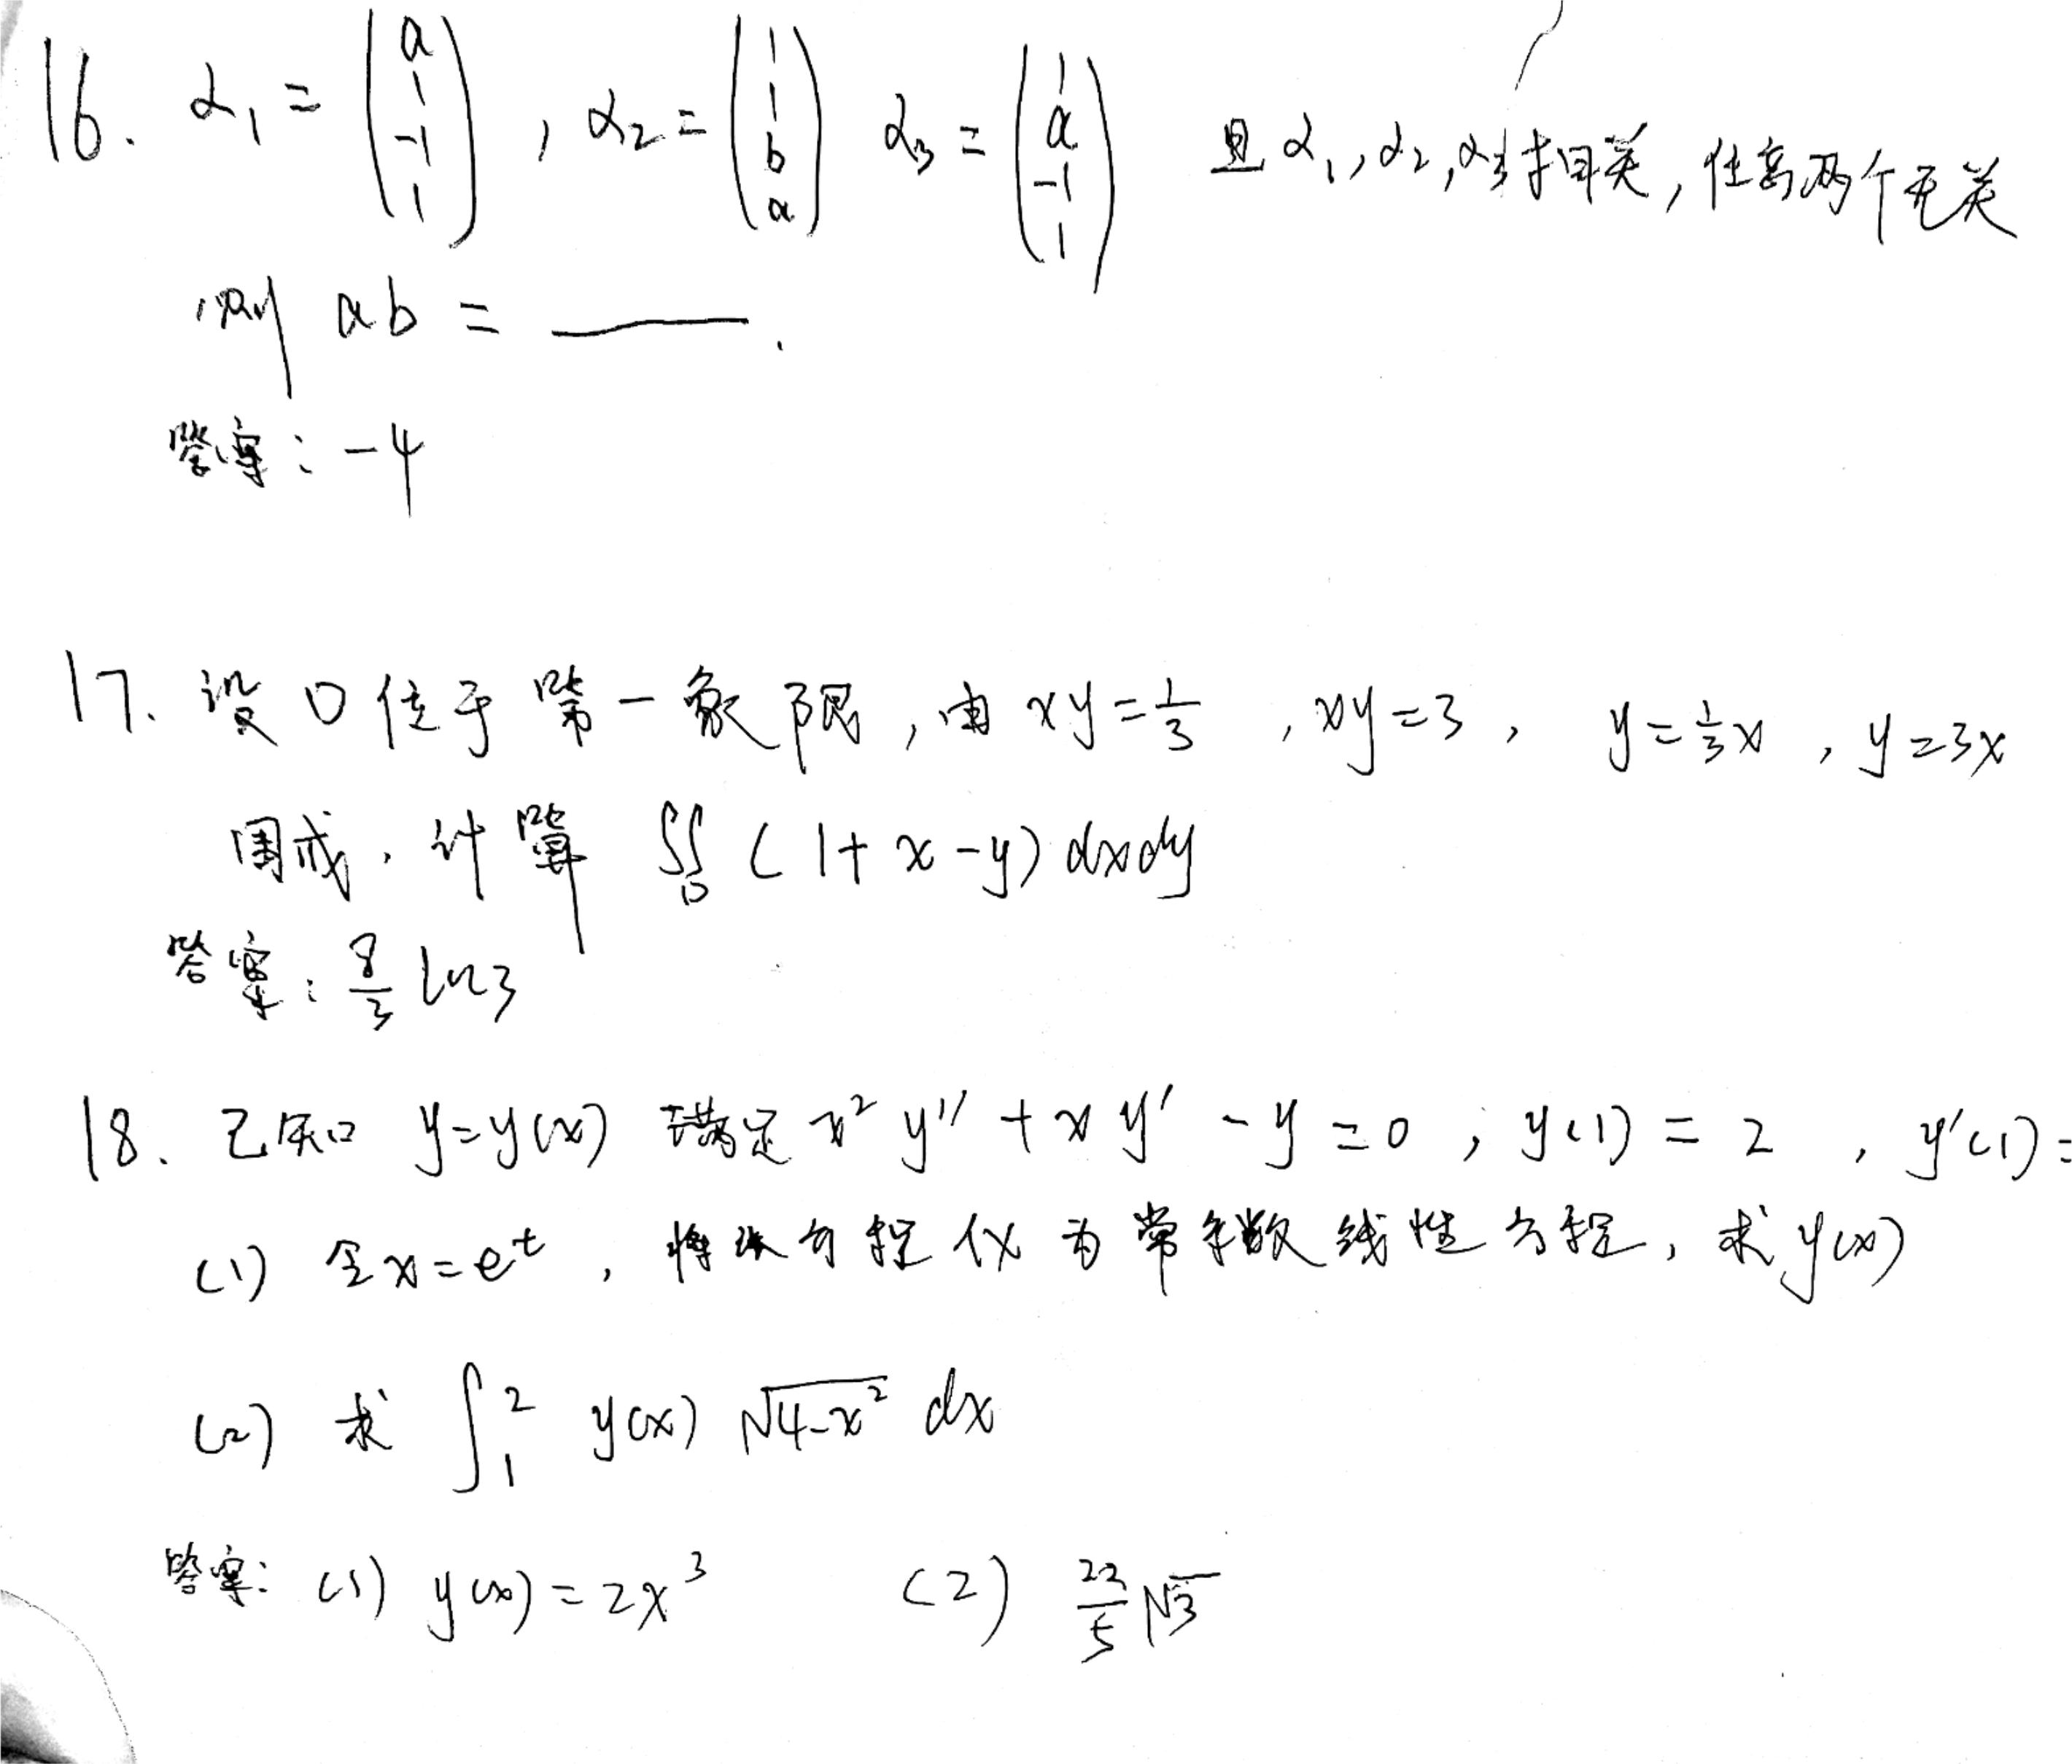 16. α₁ = (a 1 -1 1), α₂ = (1 1 b a) α₃ = (1 a -1 1) 且 α₁, α₂, α₃ 相关, 任意两个无关
则 ab = ———.
答案: -4
17. 设 D 位于第一象限, 由 xy = 1/3, xy = 3, y = 1/3 x, y = 3x
围成, 计算 ∬_D (1 + x - y) dxdy
答案: 8/3 ln3
18. 已知 y = y(x) 满足 x² y'' + x y' - y = 0, y(1) = 2, y'(1) =
(1) 令 x = e^t, 将 方程化为常系数线性方程, 求 y(x)
(2) 求 ∫₁² y(x) √(4-x²) dx
答案: (1) y(x) = 2x³ (2) 22/5 √3